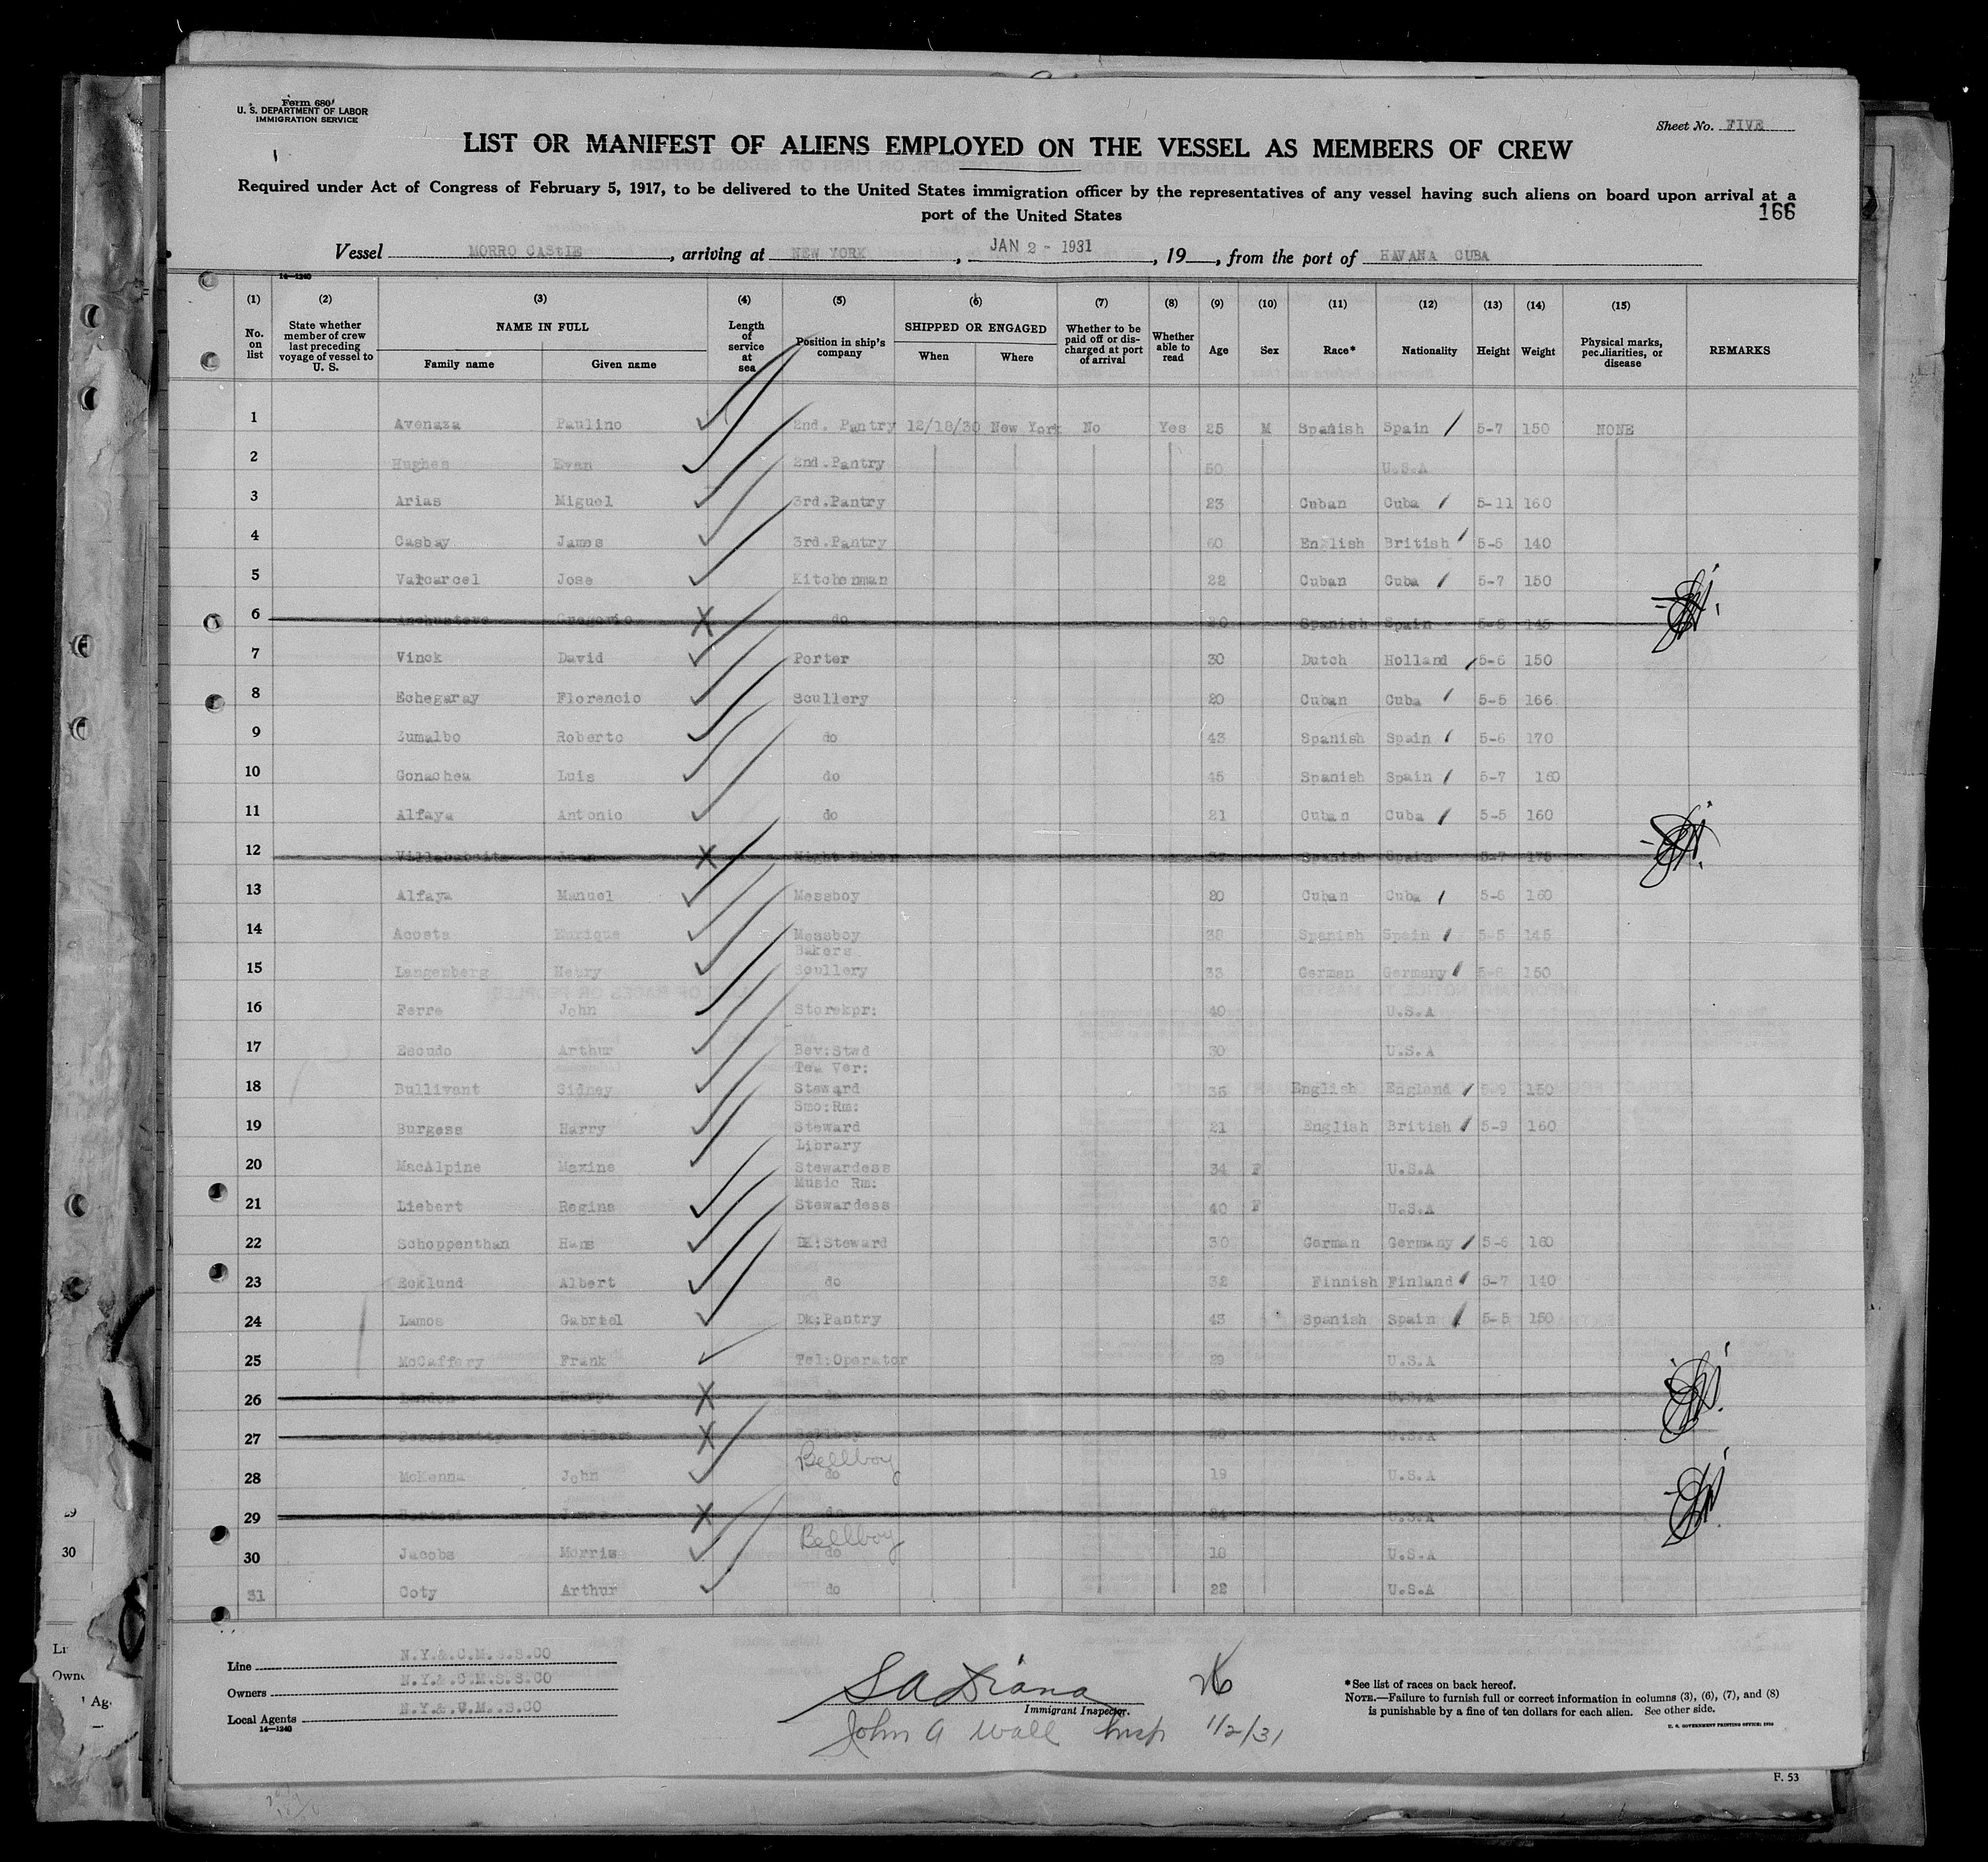 Form 680
U. S. DEPARTMENT OF LABOR
IMMIGRATION SERVICE
Sheet No. FIVE
LIST OR MANIFEST OF ALIENS EMPLOYED ON THE VESSEL AS MEMBERS OF CREW
Required under Act of Congress of February 5, 1917, to be delivered to the United States immigration officer by the representatives of any vessel having such aliens on board upon arrival at a
port of the United States
166
Vessel MORRO CAStlE, arriving at NEW YORK, JAN 2 - 1931, 19__, from the port of HAVANA CUBA
14—1240
(1) (2) (3) (4) (5) (6) (7) (8) (9) (10) (11) (12) (13) (14) (15)
No. on list
State whether member of crew last preceding voyage of vessel to U. S.
NAME IN FULL
Family name
Given name
Length of service at sea
Position in ship's company
SHIPPED OR ENGAGED
When
Where
Whether to be paid off or discharged at port of arrival
Whether able to read
Age
Sex
Race*
Nationality
Height
Weight
Physical marks, peculiarities, or disease
REMARKS
1 Avenaza Paulino 2nd. Pantry 12/18/30 New York No Yes 25 M Spanish Spain 5-7 150 NONE
2 Hughes Evan 2nd.Pantry 50 U.S.A
3 Arias Miguel 3rd.Pantry 23 Cuban Cuba 5-11 160
4 Casbay James 3rd.Pantry 60 English British 5-6 140
5 Valcarcel Jose Kitchenman 22 Cuban Cuba 5-7 150
6 Gregorio do Spanish Spain 5-6 145
7 Vinck David Porter 30 Dutch Holland 5-6 150
8 Echegaray Florencio Scullery 20 Cuban Cuba 5-5 166
9 Zumalbo Roberto do 43 Spanish Spain 5-6 170
10 Gonachea Luis do 45 Spanish Spain 5-7 160
11 Alfaya Antonio do 21 Cuban Cuba 5-5 160
12 Juan Night Baker Spanish Spain 5-7 175
13 Alfaya Manuel Messboy 20 Cuban Cuba 5-6 160
14 Acosta Enrique Messboy 38 Spanish Spain 5-5 145
Bakers
15 Langenberg Henry Scullery 33 German Germany 5-6 150
16 Ferre John Storekpr: 40 U.S.A
17 Escudo Arthur Bev:Stwd 30 U.S.A
Tea Ver:
18 Bullivant Sidney Steward 35 English England 5-9 150
Smo:Rm:
19 Burgess Harry Steward 21 English British 5-9 160
Library
20 MacAlpine Maxine Stewardess 34 F U.S.A
Music Rm:
21 Liebert Regina Stewardess 40 F U.S.A
22 Schoppenthan Hans DK:Steward 30 German Germany 5-6 160
23 Ecklund Albert do 32 Finnish Finland 5-7 140
24 Lamos Gabriel DK:Pantry 43 Spanish Spain 5-5 150
25 McCaffery Frank Tel:Operator 29 U.S.A
26 do U.S.A
27 Bellboy U.S.A
Bellboy
28 McKenna John do 19 U.S.A
29 James do U.S.A
Bellboy
30 Jacobs Morris do 18 U.S.A
31 Coty Arthur do 22 U.S.A
Line N.Y.&.C.M.S.S.CO
Owners N.Y.&.C.M.S.S.CO
Local Agents
14—1240
Immigrant Inspector.
John A Wall Insp 1/2/31
*See list of races on back hereof.
NOTE.—Failure to furnish full or correct information in columns (3), (6), (7), and (8)
is punishable by a fine of ten dollars for each alien. See other side.
F. 53
29
30